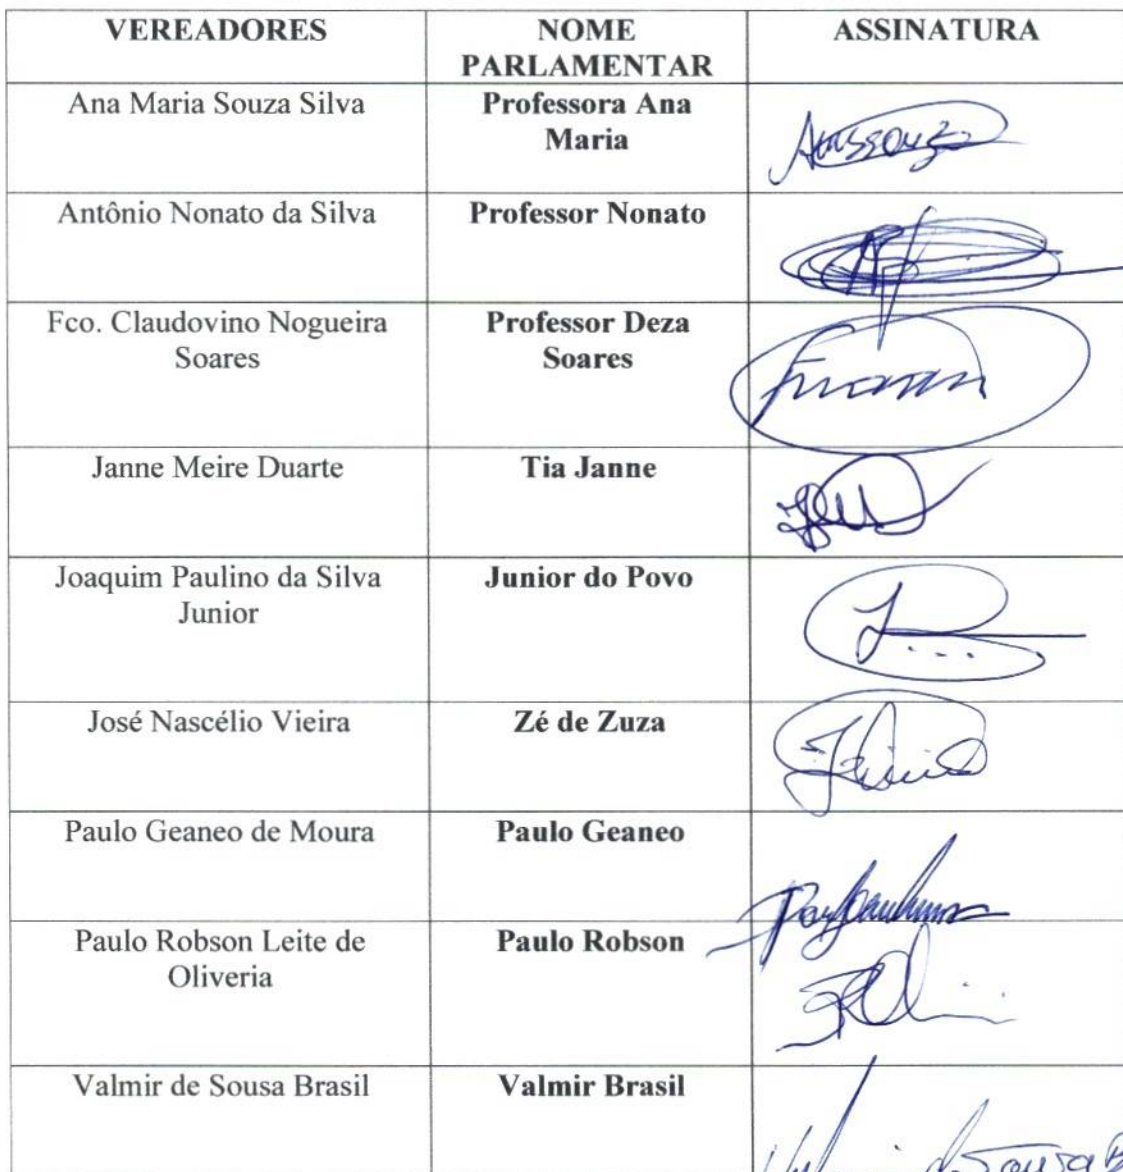 VEREADORES NOME PARLAMENTAR ASSINATURA
Ana Maria Souza Silva Professora Ana
Maria
Antônio Nonato da Silva Professor Nonato
Fco. Claudovino Nogueira Professor Deza
Soares Soares
Janne Meire Duarte Tia Janne
Joaquim Paulino da Silva Junior do Povo
Junior
José Nascélio Vieira Zé de Zuza
Paulo Geaneo de Moura Paulo Geaneo
Paulo Robson Leite de Paulo Robson
Oliveria
Valmir de Sousa Brasil Valmir Brasil